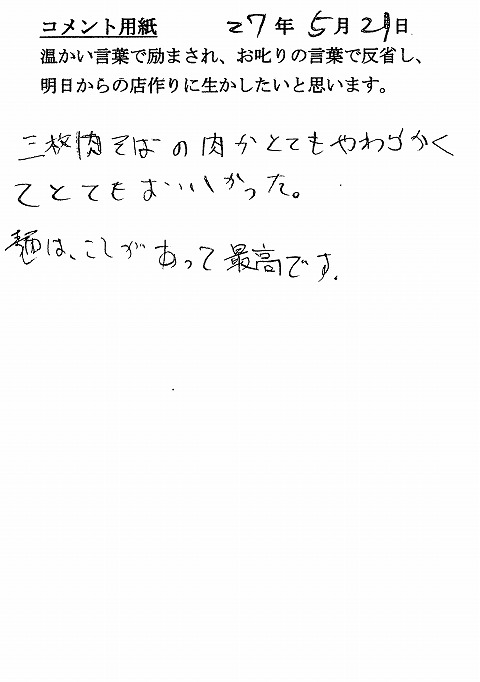 コメント用紙 27年5月21日
温かい言葉で励まされ、お叱りの言葉で反省し、
明日からの店作りに生かしたいと思います。
三枚肉そばの肉がとてもやわらかく
てとてもおいしかった。
麺は、こしがあって最高です。